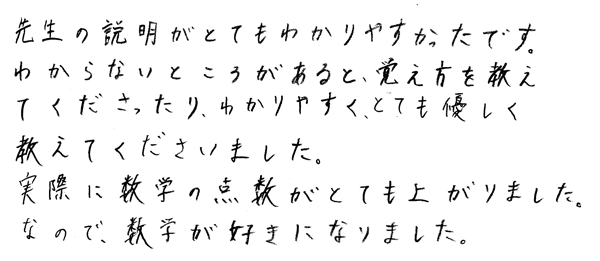 先生の説明がとてもわかりやすかったです。
わからないところがあると、覚え方を教え
てくださったり、わかりやすく、とても優しく
教えてくださいました。
実際に数学の点数がとても上がりました。
なので、数学が好きになりました。